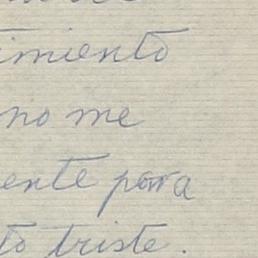 imiento
no me
ente para
to triste.